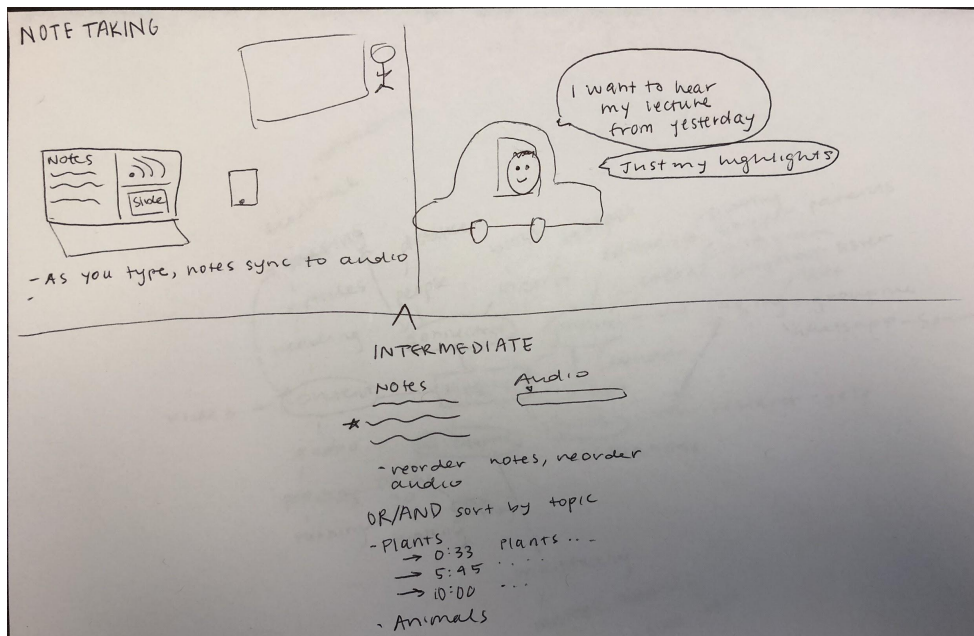 NOTE TAKING
Notes
Slide
- As you type, notes sync to audio
I want to hear
my lecture
from yesterday
Just my highlights
INTERMEDIATE
Notes
Audio
- reorder notes, reorder
audio
OR/AND sort by topic
- Plants
→ 0:33 Plants ...
→ 5:45 ....
→ 10:00 ...
- Animals